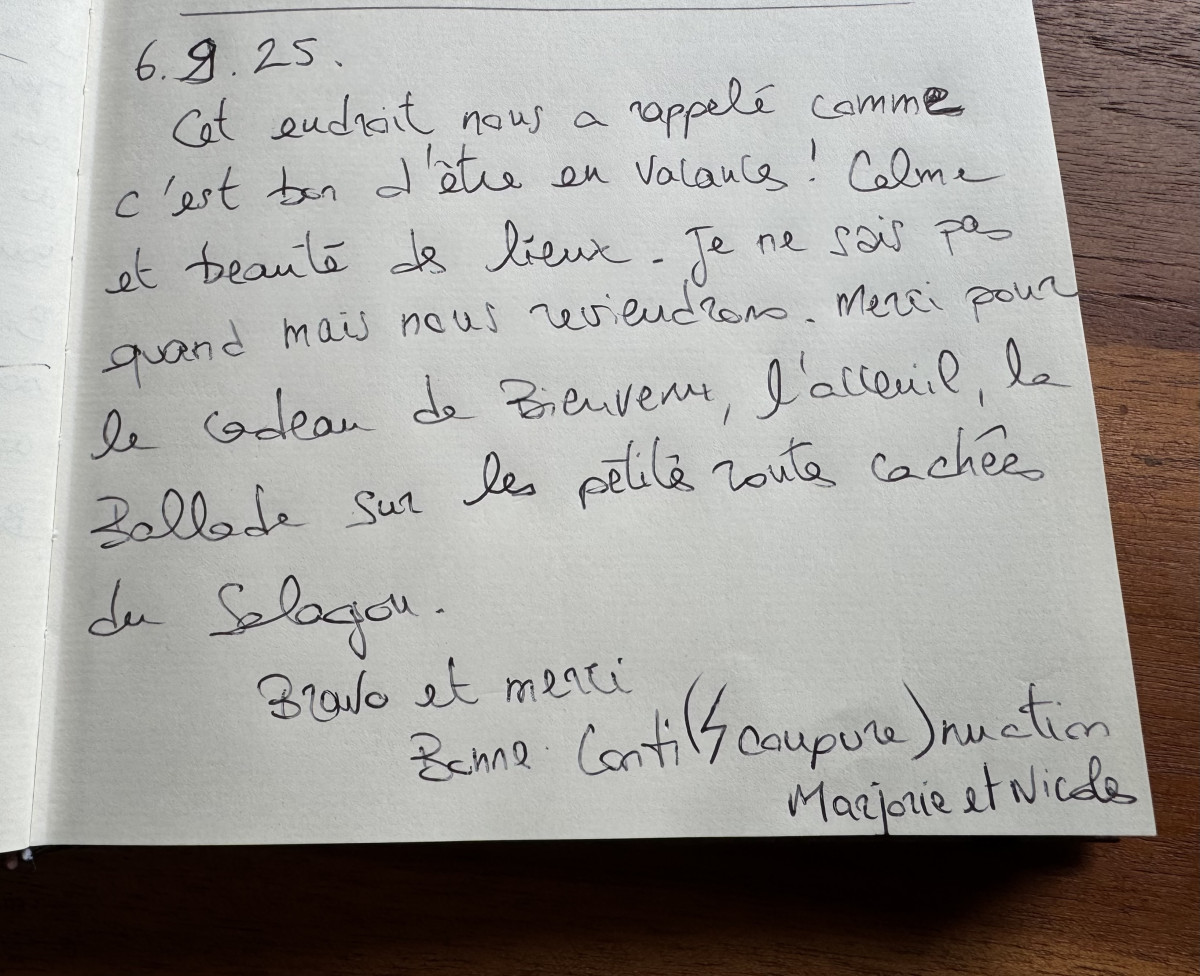 6.9.25.
Cet endroit nous a rappelé comme
c'est bon d'être en vacances ! Calme
et beauté des lieux. Je ne sais pas
quand mais nous reviendrons. Merci pour
le cadeau de Bienvenu, l'acceuil, la
Ballade sur les petites routes cachées
du Salagou.
Bravo et merci
Bonne Conti(ϟ coupure)nuction
Marjorie et Nicolas